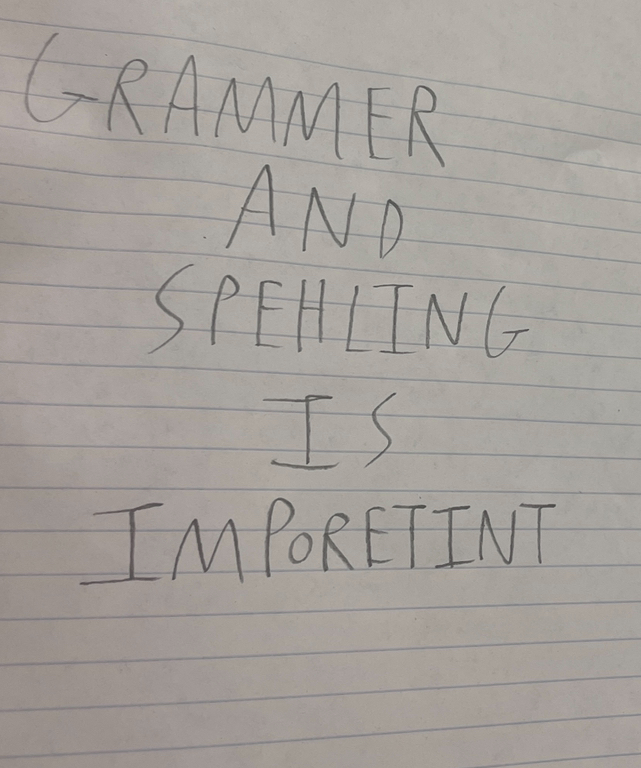 GRAMMER
AND
SPEHLING
IS
IMPORETINT